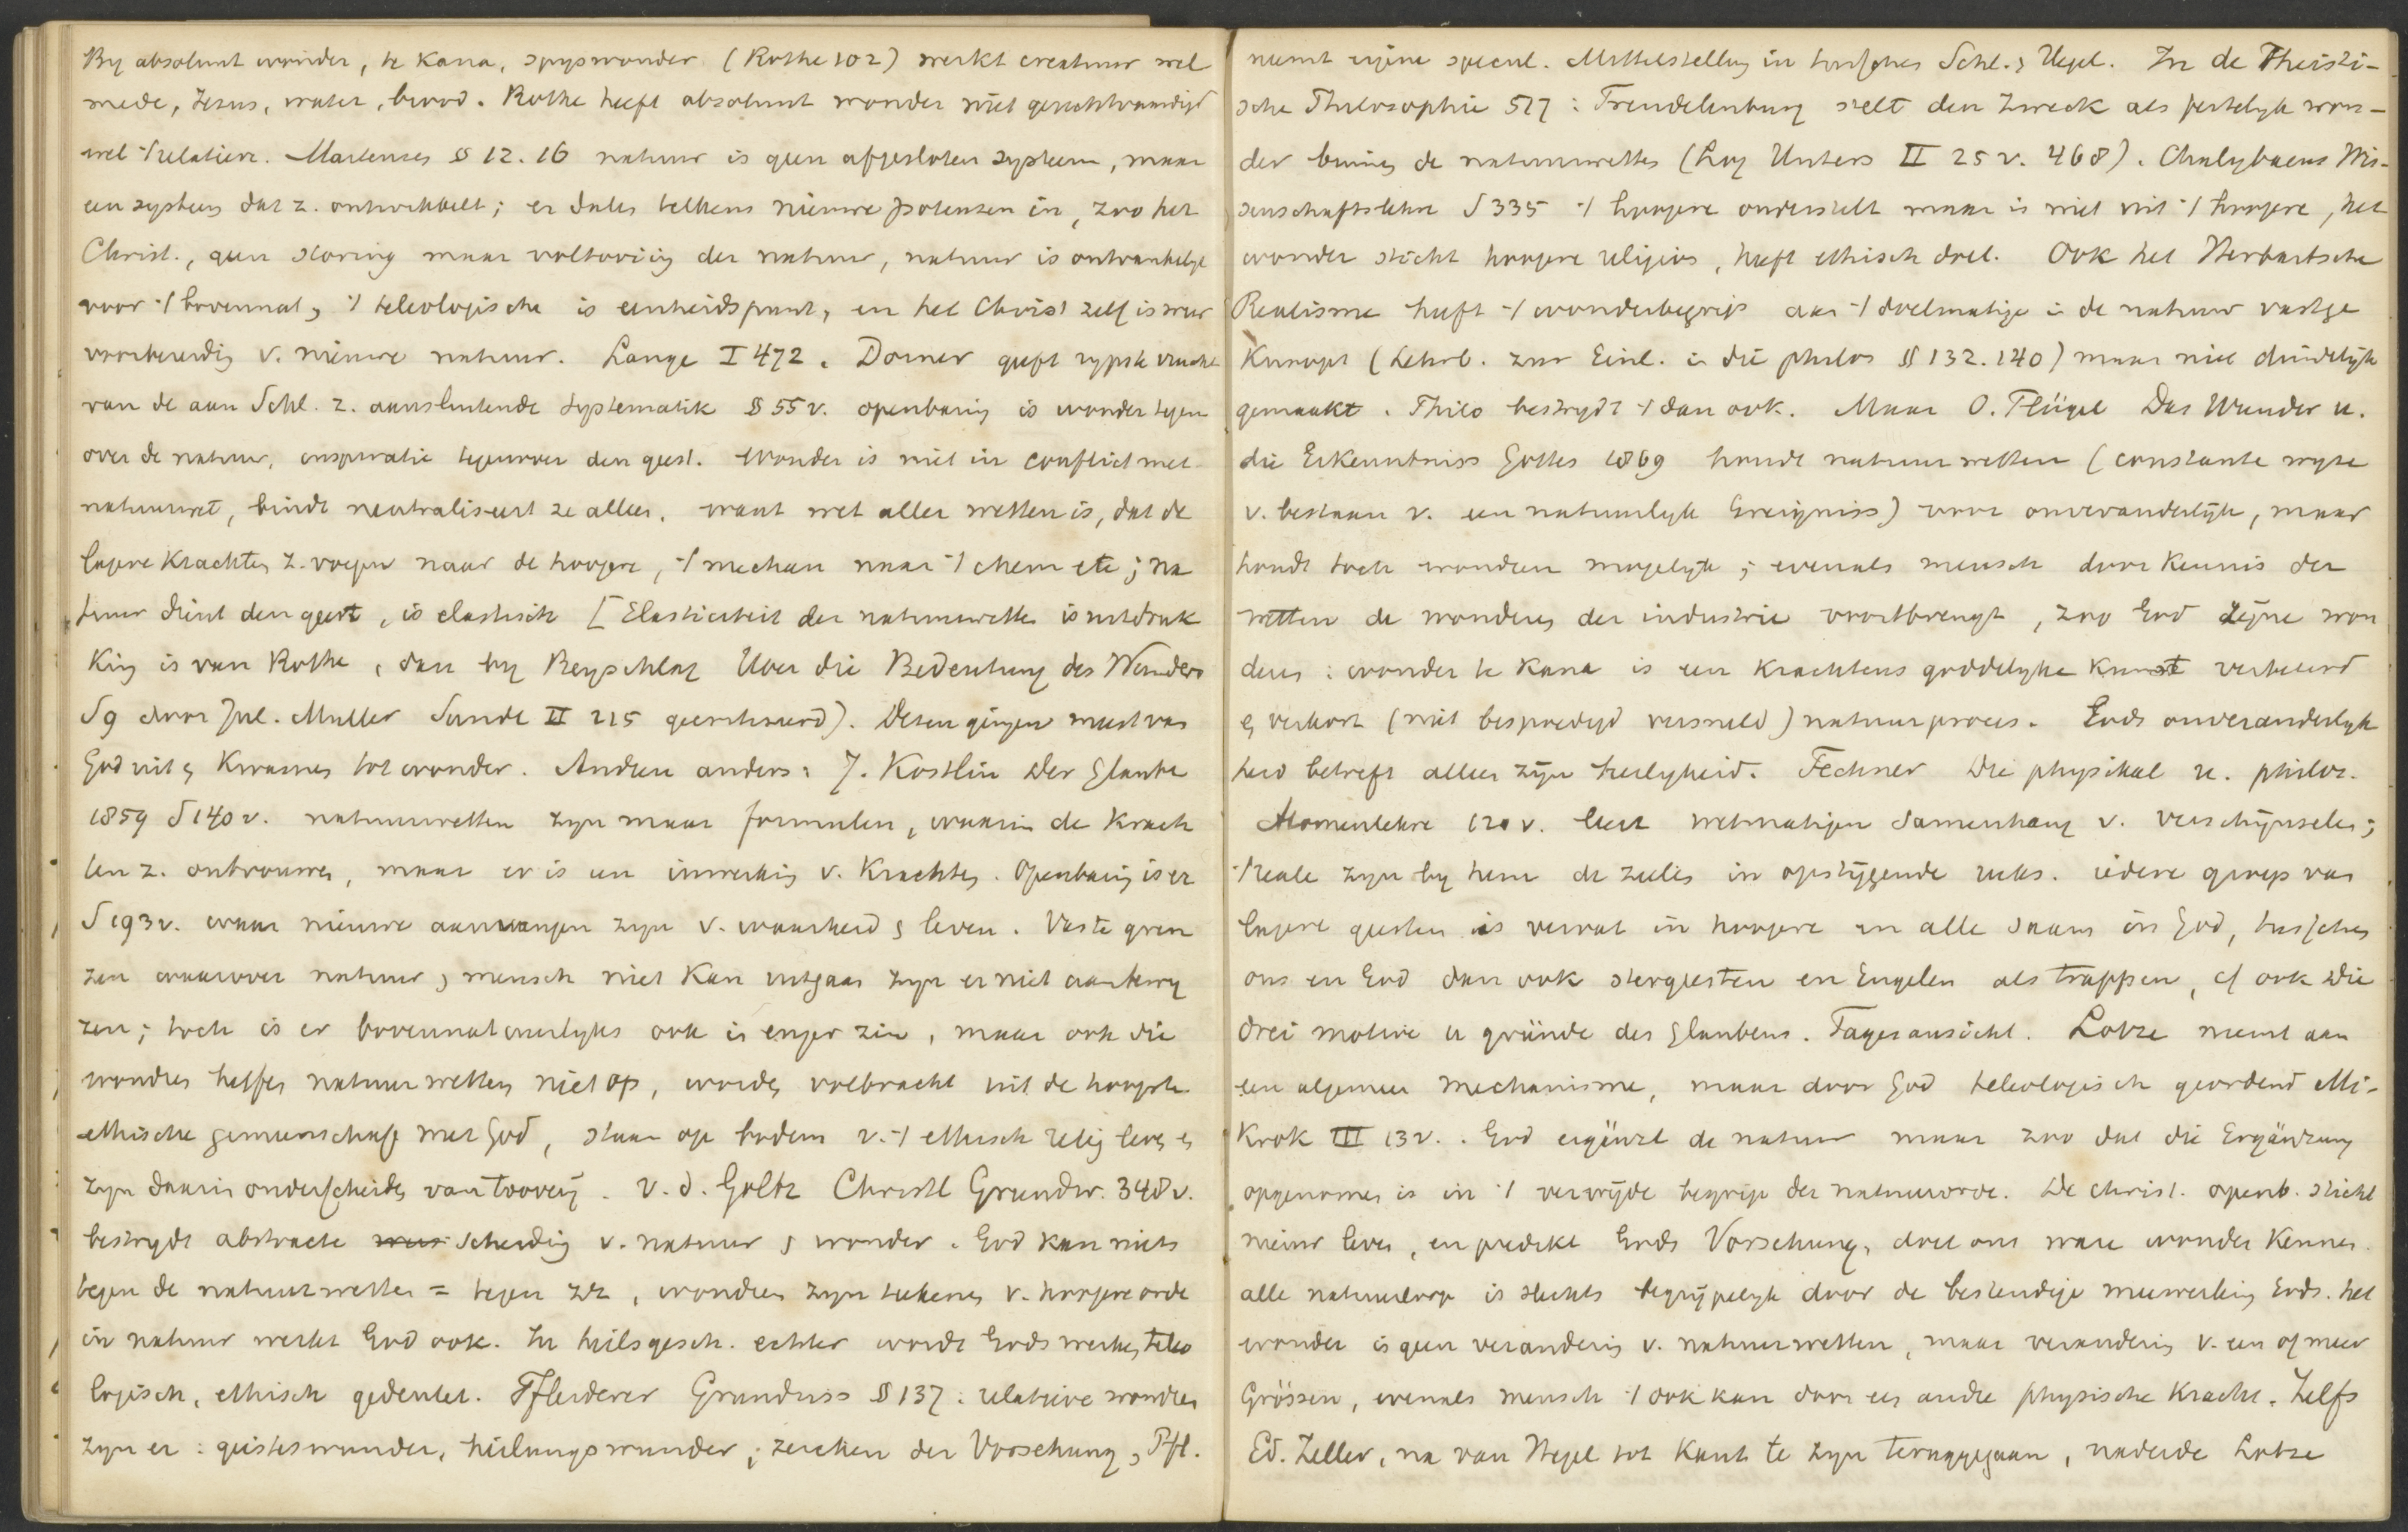 By absoluut wonder, te Kana, spyswonder (Rothe 102) werkt creatuur wel
mede, Jezus, water, brood. Rothe heeft absoluut wonder niet gerechtvaardigd
wel 't relatieve. Martensen § 12. 16 natuur is geen afgesloten systeem, maar
een systeem dat z. ontwikkelt; er dalen telkens nieuwe potenzen in, zoo het
Christ., geen storing maar voltooiing der natuur, natuur is ontvankelyk
voor 't bovennat, 't teleologische is eenheidspunt, en het Christ zelf is weer
voorbereidig v. nieuwe natuur. Lange I 472. Dorner geeft rypste vrucht
van de aan Schl. z. aansluitende systematik § 55 v. openbaring is wonder tegen
over de natuur, inspiratie tegenover den geest. Wonder is niet in conflict met
natuurwet, bindt neutraliseert ze alleen. want wet aller wetten is, dat de
lagere Krachten z. voegen naar de hoogere, 't mechan naar 't chem etc; na
tuur dient den geest, is elastisch [Elasticiteit der natuurwetten is uitdruk
king is van Rothe, dan by Beyschlag Uber die Bedeutung des Wunders
S 9 door Jul. Muller Sunde II 215 gecritiseerd). Dezen gingen meest van
God uit en kwamen tot wonder. Andren anders: J. Kostlin Der Glaube
1859 S 140 v. natuurwetten zyn maar formulen, waarin de Krach
ten z. ontvouwen, maar er is een inwerking v. Krachten. Openbaring is er
S 193 v. waar nieuwe aanvangen zyn v. waarheid en leven. Vaste gren
zen waarover natuur en mensch niet kan uitgaan zyn er niet aan te wy
zen; toch is er bovennatuurlyks ook in enger zin, maar ook die
wondren heffen natuurwetten niet op, worden volbracht uit de hoogste
ethische gemeenschap met God, staan op bodem v. 't ethisch relig leven en
zyn daarin onderscheiden van toovery. v. d. Goltz Christl Grundw. 348 v.
bestrydt abstracte scheiding v. natuur en wonder. God kan niets
tegen de natuurwetten = tegen zich, wondren zyn teekenen v. hoogere orde
in natuur werkt God ook. In heilsgesch. echter wordt Gods werken teleo
logisch, ethisch gedeutet. Pfleiderer Grundriss § 137: relatieve wondren
zyn er: geisteswunder, heilungswunder, zeichen der Vorsehung, Pfl.
neemt eigene specul. Mittelstellung in tusschen Schl. en Hegel. In de Theisti-
sche Philosophie 527: Trendelenburg stelt den Zweck als feitelyk won-
der binnen de natuurwetten (Log Unters II 25 v. 468). Chalybaeus Wis-
senschaftslehre S 335 't hoogere onderstelt maar is niet uit 't hoogere, het
wonder sticht hoogere religies, heeft ethisch doel. Ook het Herbartsche
Realisme heeft 't wonderbegrip aan 't doelmatige in de natuur vastge
knoopt (Lehrb. zur Einl. in die philos §§ 132. 140) maar niet duidelyk
gemaakt. Thilo bestrydt 't dan ook. Maar O. Flügel Das Wunder u.
die Erkenntniss Gottes 1869 houdt natuurwetten (constante wyze
v. bestaan v. een natuurlyk Ereigniss) voor onveranderlyk, maar
houdt toch wondren mogelyk; evenals mensch door kennis der
wetten de wonderen der industrie voortbrengt, zoo God zijne won
deren: wonder te Kana is een krachtens goddelyke kunst verkeerd
en verkort (niet bespoedigd versneld) natuurproces. Gods onveranderlyk
heid betreft alleen zijn heiligheid. Fechner Die physikal u. philos.
Atomenlehre 120 v. leert wetmatigen Samenhang v. verschijnselen;
't reale zyn by hem de zielen in opstijgende reeks. iedere groep van
lagere geesten is vervat in hoogere en alle saam in God, tusschen
ons en God dan ook stergeesten en Engelen als trappen, cf ook Die
drei motive u gründe des Glaubens. Tagesansicht. Lotze neemt aan
een algemeen mechanisme, maar door God teleologisch geordend Mi-
Krok III 13 v. . God ergänzt de natuur maar zoo dat die Ergänzung
opgenomen is in 't verwijde begrip der natuurorde. De christ. openb. sticht
nieuw leven, en predikt Gods Vorsehung, doet ons ware wonder kennen.
alle natuurloop is slechts begrijpelyk door de bestendige meewerking Gods. het
wonder is geen verandering v. natuurwetten, maar verandering v. een of meer
Grössen, evenals mensch 't ook kan door een andre physische Kracht. Zelfs
Ed. Zeller, na van Hegel tot Kant te zyn teruggegaan, naderde Lotze